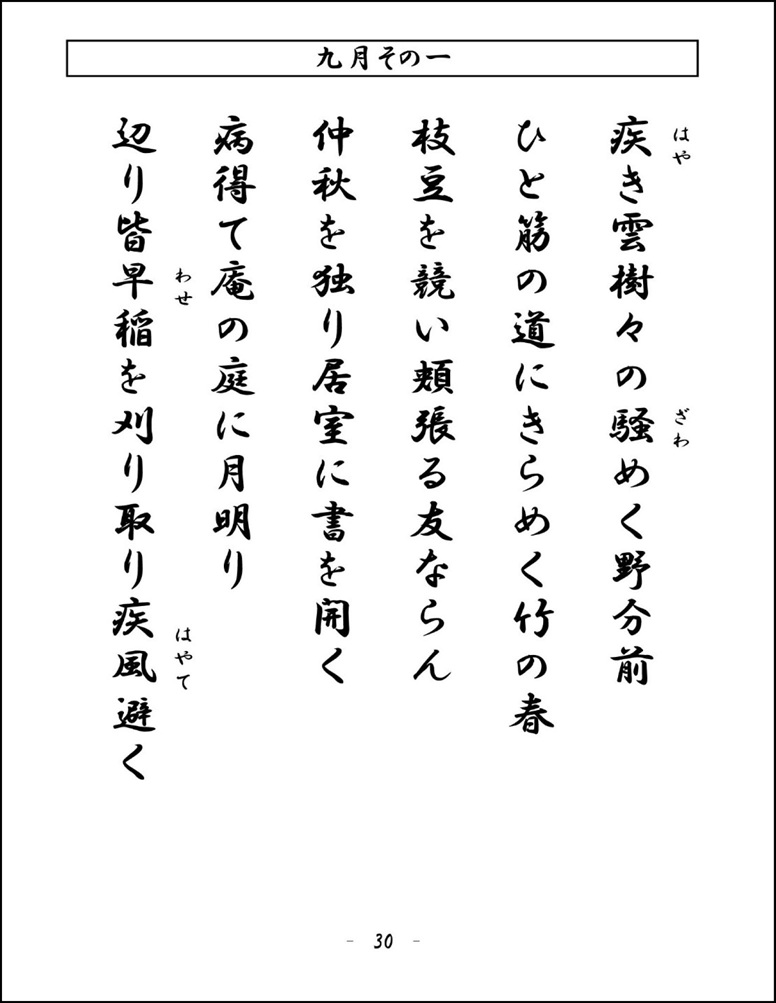 九月その一
疾き雲樹々の騒めく野分前
はや
ざわ
ひと筋の道にきらめく竹の春
枝豆を競い頬張る友ならん
仲秋を独り居室に書を開く
病得て庵の庭に月明り
辺り皆早稲を刈り取り疾風避く
わせ
はやて
- 30 -